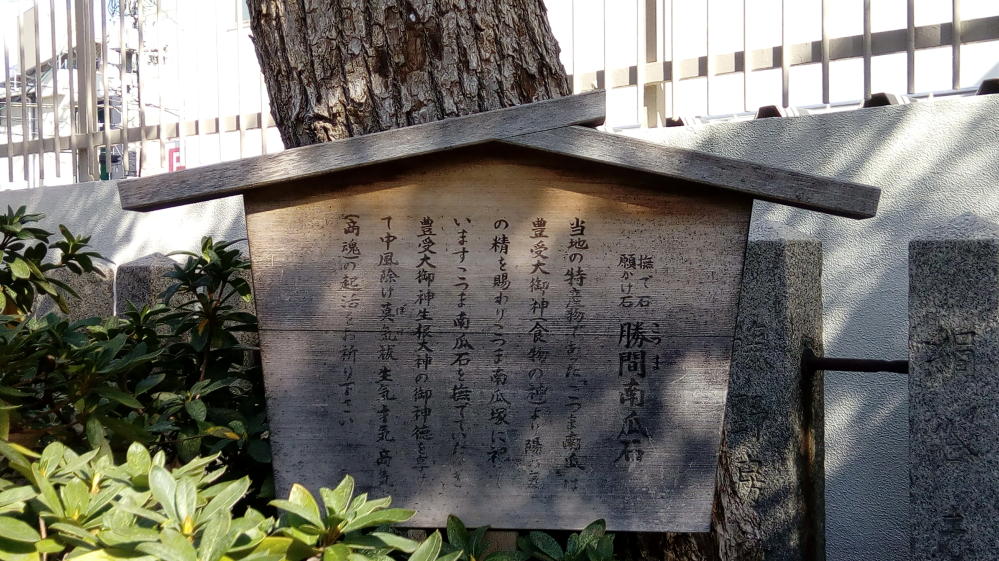 撫で石
願かけ石
勝間南瓜石
こつま
当地の特産物であった こつま南瓜 は
豊受大御神(食物の神)より陽お気
の精を賜わりこつま南瓜塚に神
いますこつま南瓜石を撫でていただき
豊受大御神生根大神の御神徳を
て中風除け 気祓 生気 気 気
魂の起活をお祈り下さい